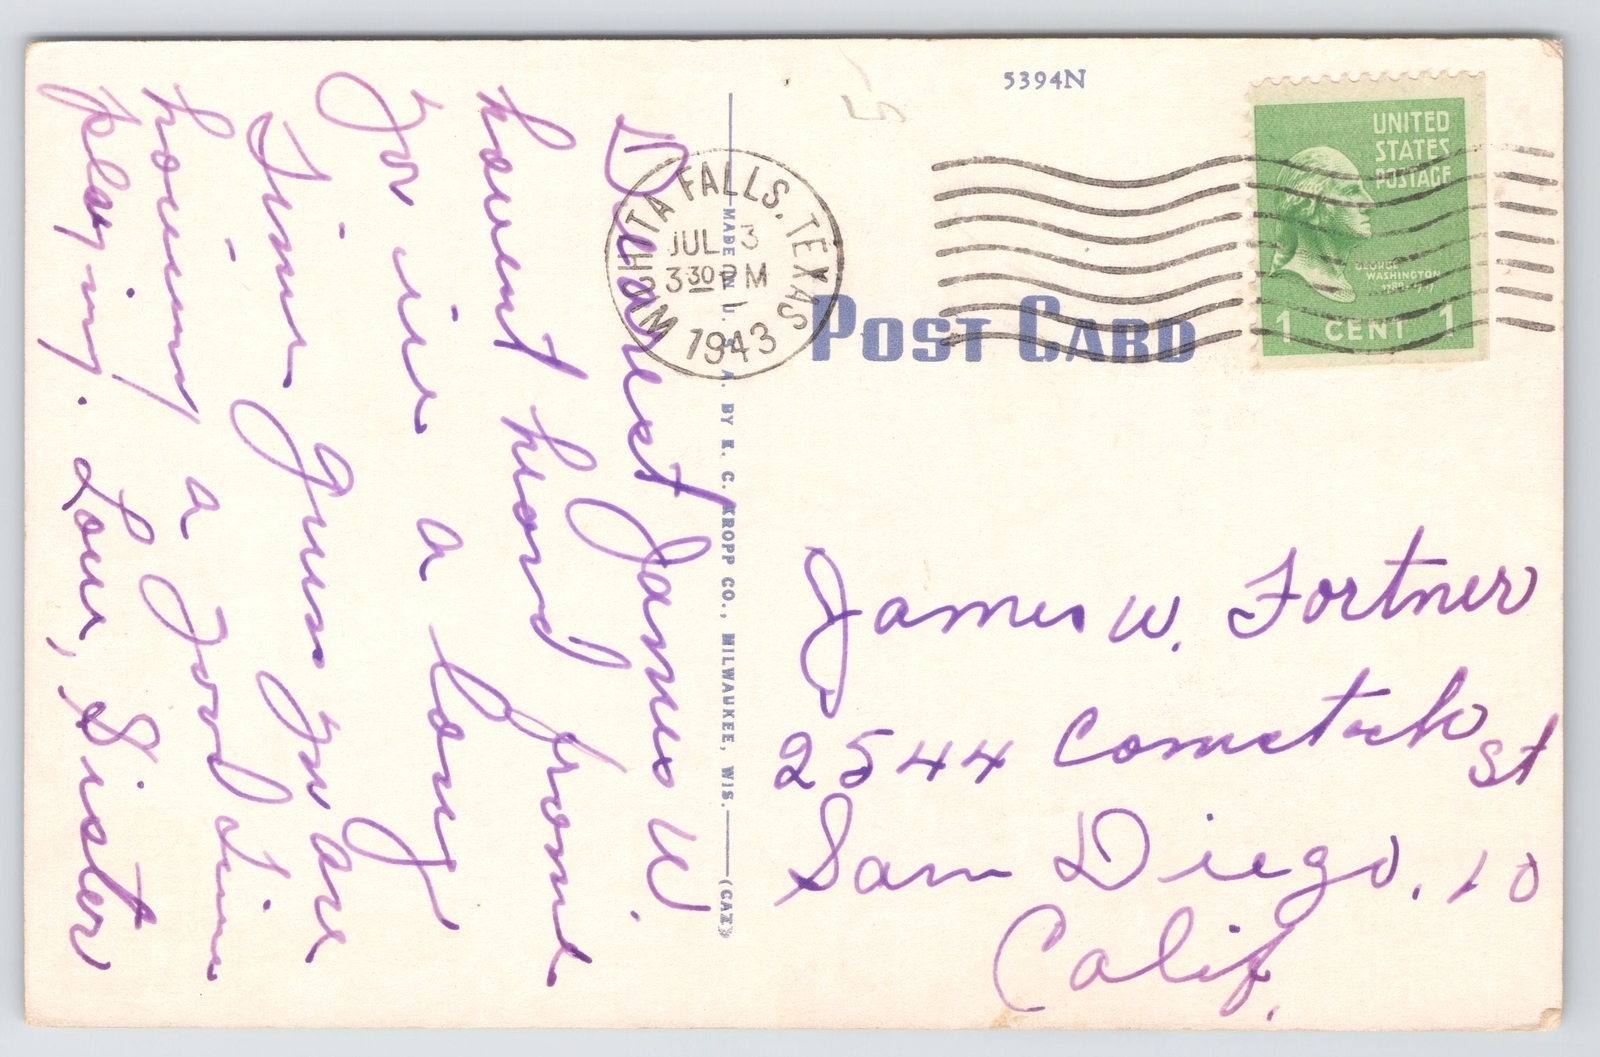 5394N
UNITED
STATES
POSTAGE
GEORGE
WASHINGTON
1 CENT 1
WICHITA FALLS, TEXAS
JUL 3
3 30 PM
1943
POST CARD
MADE IN U. S. A. BY E. C. KROPP CO., MILWAUKEE, WIS.
Dearest James W.
havent heard from
Yor in a long
Time guess you are
having a good time
playing. Love, Sister
James W. Fortner
2544 Comstock St
San Diego. 10
Calif.